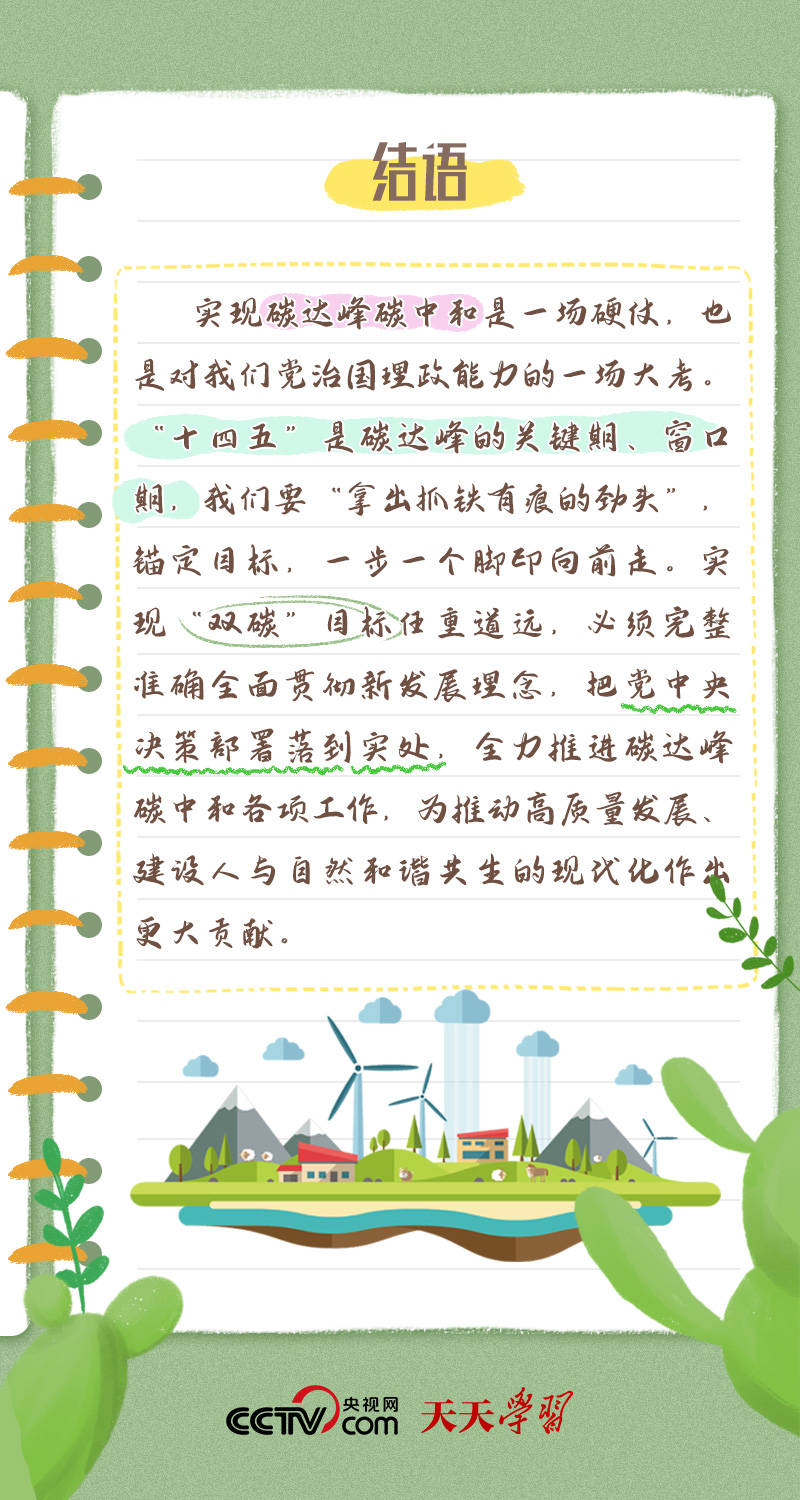 结语
实现碳达峰碳中和是一场硬仗，也
是对我们党治国理政能力的一场大考。
“十四五”是碳达峰的关键期、窗口
期，我们要“拿出抓铁有痕的劲头”，
锚定目标，一步一个脚印向前走。实
现“双碳”目标任重道远，必须完整
准确全面贯彻新发展理念，把党中央
决策部署落到实处，全力推进碳达峰
碳中和各项工作，为推动高质量发展、
建设人与自然和谐共生的现代化作出
更大贡献。
CCTV.com 央视网 天天学习